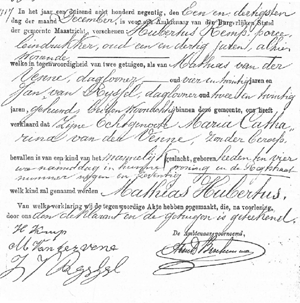 In het jaar een duizend acht honderd negentig, den Een en dertigsten
dag der maand December, is voor ons Ambtenaar van den Burgerlijken Stand
der gemeente Maastricht, verschenen Hubertus Kemp, porse-
leindrukker, oud een en dertig jaren, alhier
wonende
welke in tegenwoordigheid van twee getuigen, als van Mathias van der
Venne, daglooner oud vier en twintig jaren en
Jan van Reijssel, daglooner oud twee en twintig
jaren, gehuwd buiten bloedverwantschap deze gemeente, ons heeft
verklaard dat Zijne Echtgenoote Maria Catha-
rina van der Venne, Zonder beroep,
bevallen is van een kind van het mannelijk geslacht, geboren heden ten vier
ure namiddag in hunne woning
nummer negen en twintig
welk kind zal genaamd worden Mathias Hubertus.
Van welke verklaring wij de tegenwoordige Akte hebben opgemaakt, die, na voorlezing,
door ons den declarant en de getuigen is geteekend.
De Ambtenaar voornoemd,
H Kemp
M Van der venne